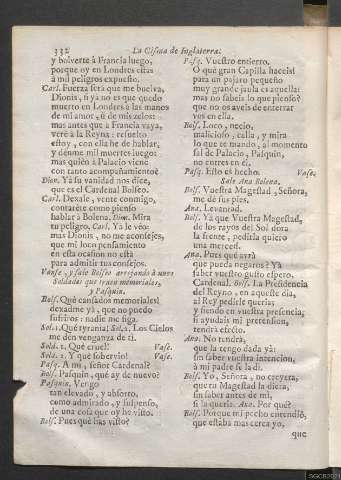 332
La Cisma de Inglaterra.
y bolverte à Francia luego,
porque oy en Londres estàs
à mil peligros expuesto.
Carl. Fuerza serà que me buelva,
Dionis, si ya no es que quedo
muerto en Londres à las manos
de mi amor, ù de mis zelos:
mas antes que à Francia vaya,
verè à la Reyna: resuelto
estoy, con ella he de hablar,
y dènme mil muertes luego:
mas quièn à Palacio viene
con tanto acompañamiento?
Dion. Yà su vanidad nos dice,
que es el Cardenal Bolseo.
Carl. Dexale, vente conmigo,
contarète como pienso
hablar à Bolena. Dion. Mira
tu peligro. Carl. Yà le veo:
mas Dionis, no me aconsejes,
que mi loco pensamiento
en esta ocasion no està
para admitir tus consejos.
Vanse, y sale Bolseo arrojando à unos
Soldados que traen memoriales,
y Pasquin.
Bols. Què cansados memoriales!
dexadme yà, que no puedo
sufriros: nadie me siga.
Sol. 1. Què tyrania! Sol. 2. Los Cielos
me dèn venganza de ti.
Sold. 1. Què cruel! Vase.
Sold. 2. Y què sobervio! Vase.
Pasq. A mi, señor Cardenal?
Bols. Pasquin, què ay de nuevo?
Pasquin. Vengo
tan elevado, y absorto,
como admirado, y suspenso,
de una cosa que oy he visto.
Bols. Pues què has visto?
Pasq. Vuestro entierro.
O què gran Capilla haceis!
para un pajaro pequeño
muy grande jaula es aquella:
mas no sabeis lo que pienso?
que no os aveis de enterrar
vos en ella.
Bols. Loco, necio,
malicioso, calla, y mira
lo que te mando, al momento
sal de Palacio, Pasquin,
no entres en èl.
Pasq. Esto es hecho. Vase.
Sale Ana Bolena.
Bols. Vuestra Magestad, Señora,
me dè sus pies.
Ana. Levantad.
Bols. Yà que Vuestra Magestad,
de los rayos del Sol dora
la frente, pedirla quiero
una merced.
Ana. Pues què avrà
que pueda negaros? Yà
saber vuestro gusto espero,
Cardenal. Bols. La Presidencia
del Reyno, en aqueste dia,
al Rey pedirle queria;
y siendo en vuestra presencia;
si ayudais mi pretension,
tendrà efecto.
Ana. No tendrà,
que la tengo dada yà:
sin saber vuestra intencion,
à mi padre se la dì.
Bols. Yo, Señora, no creyera,
que tu Magestad la diera,
sin saber antes de mi,
si la queria. Ana. Por què?
Bols. Porque mi pecho entendiò,
que estaba mas cerca yo,
que
SGCB2021